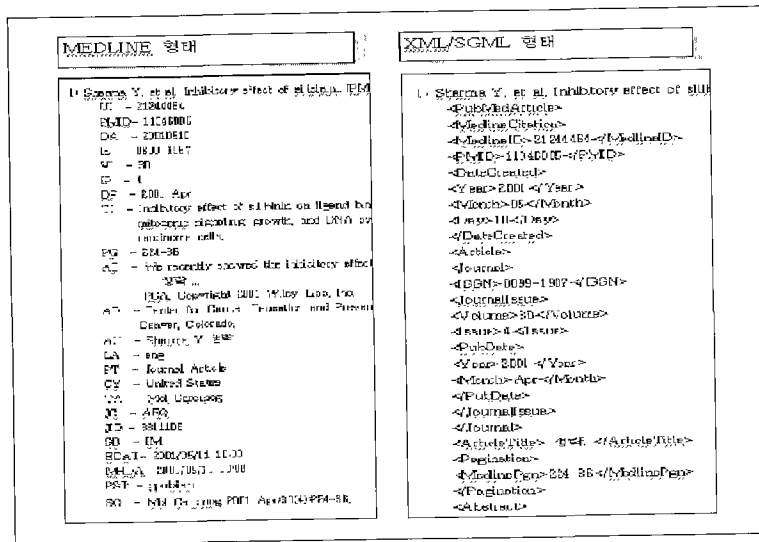 MEDLINE 형태
1: Sharma Y, et al. Inhibitory effect of silibinin
UI - 21244464
PMID- 11346006
DA - 20010510
IS
VI - 30
IP - 4
DP - 2001 Apr
TI - Inhibitory effect of silibinin on ligand
signaling, growth, and DNA
carcinoma cells.
PG - 224-36
AB - We recently showed the inhibitory effect
생략 ...
Copyright 2001 Wiley-Liss, Inc.
AD - Center for Cancer and
Denver, Colorado,
AU - Sharma Y
LA - eng
PT - Journal Article
CY - United States
TA - Mol Carcinog
JC - AEQ
JID - 8811105
SB - IM
EDAT- 2001/05/11 10:00
PST - ppublish
SO - Mol Carcinog 2001 Apr;30(4):224-36.
XML/SGML 형태
1: Sharma Y, et al. Inhibitory effect of
<PubMedArticle>
<MedlineCitation>
<MedlineID>21244464</MedlineID>
<PMID>11346006</PMID>
<DateCreated>
<Year>2001</Year>
<Month>05</Month>
<Day>10</Day>
</DateCreated>
<Article>
<Journal>
<ISSN>0899-1987</ISSN>
<JournalIssue>
<Volume>30</Volume>
<Issue>4</Issue>
<PubDate>
<Year>2001</Year>
<Month>Apr</Month>
</PubDate>
</JournalIssue>
</Journal>
<ArticleTitle> 생략 </ArticleTitle>
<Pagination>
<MedlinePgn>224-36</MedlinePgn>
</Pagination>
<Abstract>